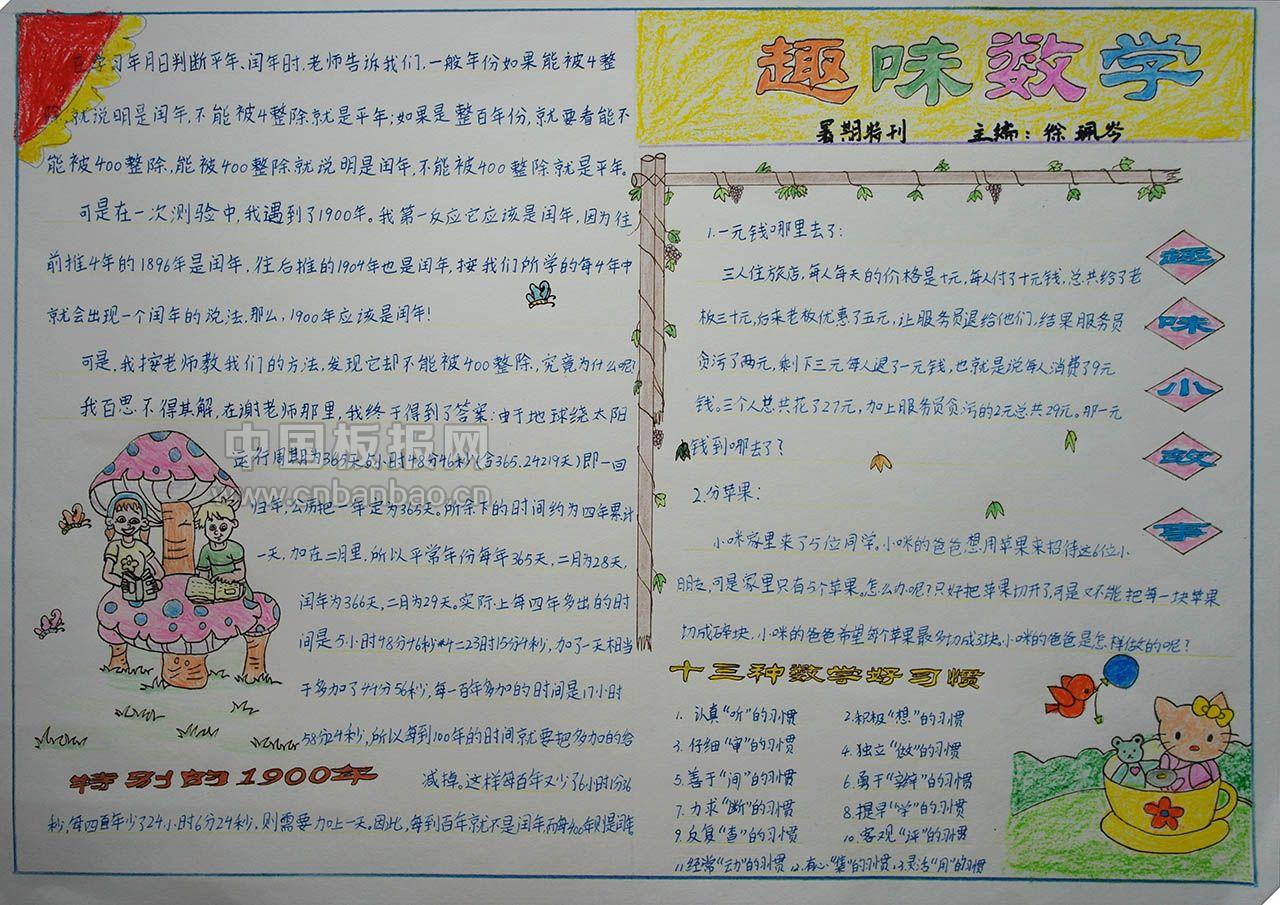 趣味数学
暑期特刊 主编：徐珮岑
在学习年月日判断平年、闰年时，老师告诉我们，一般年份如果能被4整
除，就说明是闰年，不能被4整除就是平年；如果是整百年份，就要看能不
能被400整除，能被400整除就说明是闰年，不能被400整除就是平年。
可是在一次测验中，我遇到了1900年。我第一反应它应该是闰年，因为往
前推4年的1896年是闰年，往后推的1904年也是闰年，按我们所学的每4年中
就会出现一个闰年的说法，那么，1900年应该是闰年！
可是，我按老师教我们的方法，发现它却不能被400整除，究竟为什么呢？
我百思不得其解，在谢老师那里，我终于得到了答案：由于地球绕太阳
运行周期为365天5小时48分46秒(合365.24219天)即一回
归年，公历把一年定为365天。所余下的时间约为四年累计
一天，加在二月里，所以平常年份每年365天，二月为28天，
闰年为366天，二月为29天。实际上每四年多出的时
间是5小时48分46秒*4=23时15分4秒，加了一天相当
于多加了44分56秒，每一百年多加的时间是17小时
58分24秒，所以每到100年的时间就要把多加的给
减掉。这样每百年又少了6小时1分36
秒，每四百年少了24小时6分24秒，则需要加上一天。因此，每到百年就不是闰年而每400年则是闰年
特别的1900年
中国板报网
www.cnbanbao.cn
趣味小故事
1.一元钱哪里去了：
三人住旅店，每人每天的价格是十元，每人付了十元钱，总共给了老
板三十元，后来老板优惠了五元，让服务员退给他们，结果服务员
贪污了两元，剩下三元每人退了一元钱，也就是说每人消费了9元
钱。三个人总共花了27元，加上服务员贪污的2元总共29元。那一元
钱到哪去了？
2.分苹果：
小咪家里来了5位同学。小咪的爸爸想用苹果来招待这6位小
朋友，可是家里只有5个苹果。怎么办呢？只好把苹果切开了，可是又不能把每一块苹果
切成碎块，小咪的爸爸希望每个苹果最多切成3块。小咪的爸爸是怎样做的呢？
十三种数学好习惯
1. 认真“听”的习惯 2.积极“想”的习惯
3. 仔细“审”的习惯 4. 独立“做”的习惯
5.善于“问”的习惯 6.勇于“辩”的习惯
7.力求“断”的习惯 8.提早“学”的习惯
9.反复“查”的习惯 10.客观“评”的习惯
11.经常“动”的习惯 12.有心“集”的习惯 13.灵活“用”的习惯